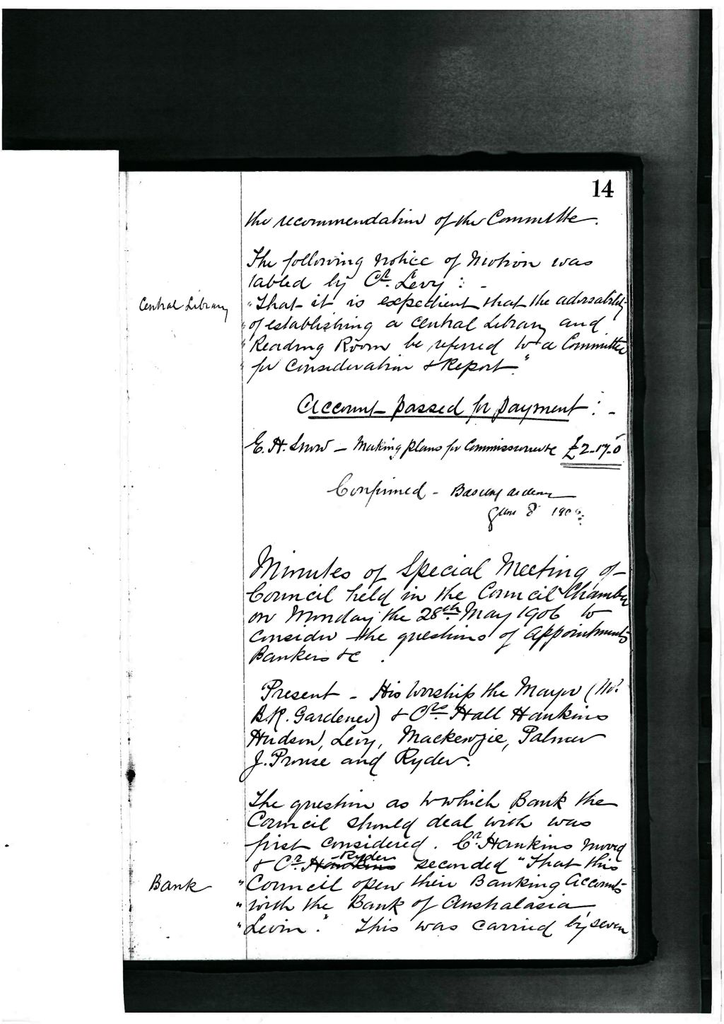 14
the recommendation of the Committe.
The following notice of Motion was
tabled by Cr. Levy : -
Central Library
"That it is expedient that the advisability
"of establishing a central Library and
"Reading Room be referred to a Committee
"for Consideration & Report."
Account passed for payment : -
E. H. Snow - Making plans for Commissioners £2-17-0
Confirmed -
June 8 190
Minutes of Special Meeting of
Council held in the Council Chamber
on Monday the 28th May 1906 to
consider the questions of Appointments
Bankers &c.
Present - His Worship the Mayor (Mr.
B.R. Gardener) & Crs. Hall Hankins
Hudson, Levy, Mackenzie, Palmer
J. Prouse and Ryder.
The question as to which Bank the
Council should deal with was
first considered. Cr. Hankins moved
& Cr. Hankins Ryder seconded "That this
Bank
"Council open their Banking Accounts
"with the Bank of Australasia
"Levin." This was carried by seven